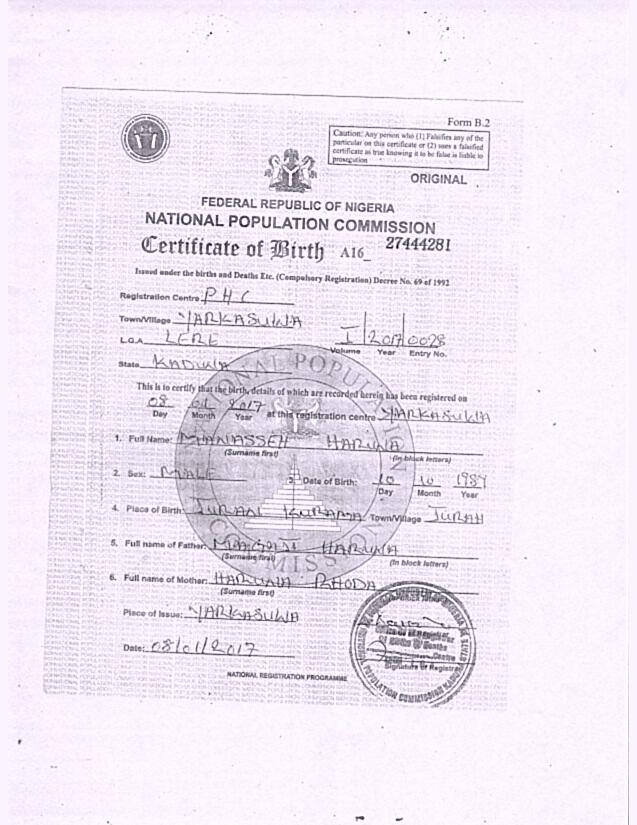 Form B.2
Caution: Any person who (1) Falsifies any of the
particular on this certificate or (2) uses a falsified
certificate as true knowing it to be false is liable to
prosecution
ORIGINAL
FEDERAL REPUBLIC OF NIGERIA
NATIONAL POPULATION COMMISSION
Certificate of Birth A16_ 27444281
Issued under the births and Deaths Etc. (Compulsory Registration) Decree No. 69 of 1992
Registration Centre PHC
Town/Village YARKASUWA
L.G.A. LERE
I 2017 0028
Volume Year Entry No.
State KADUNA
This is to certify that the birth, details of which are recorded herein has been registered on
08 01 2017 at this registration centre YARKASUWA
Day Month Year
1. Full Name: MANASSEH HARUNA
(Surname first) (In block letters)
2. Sex: MALE 3. Date of Birth: 10 10 1989
Day Month Year
4. Place of Birth: KURAMA Town/Village
5. Full name of Father: MAGAJI HARUNA
(Surname first) (In block letters)
6. Full name of Mother: HARUNA RHODA
(Surname first)
Place of Issue: YARKASUWA
Date: 08/01/2017
Signature of Registrar
NATIONAL REGISTRATION PROGRAMME